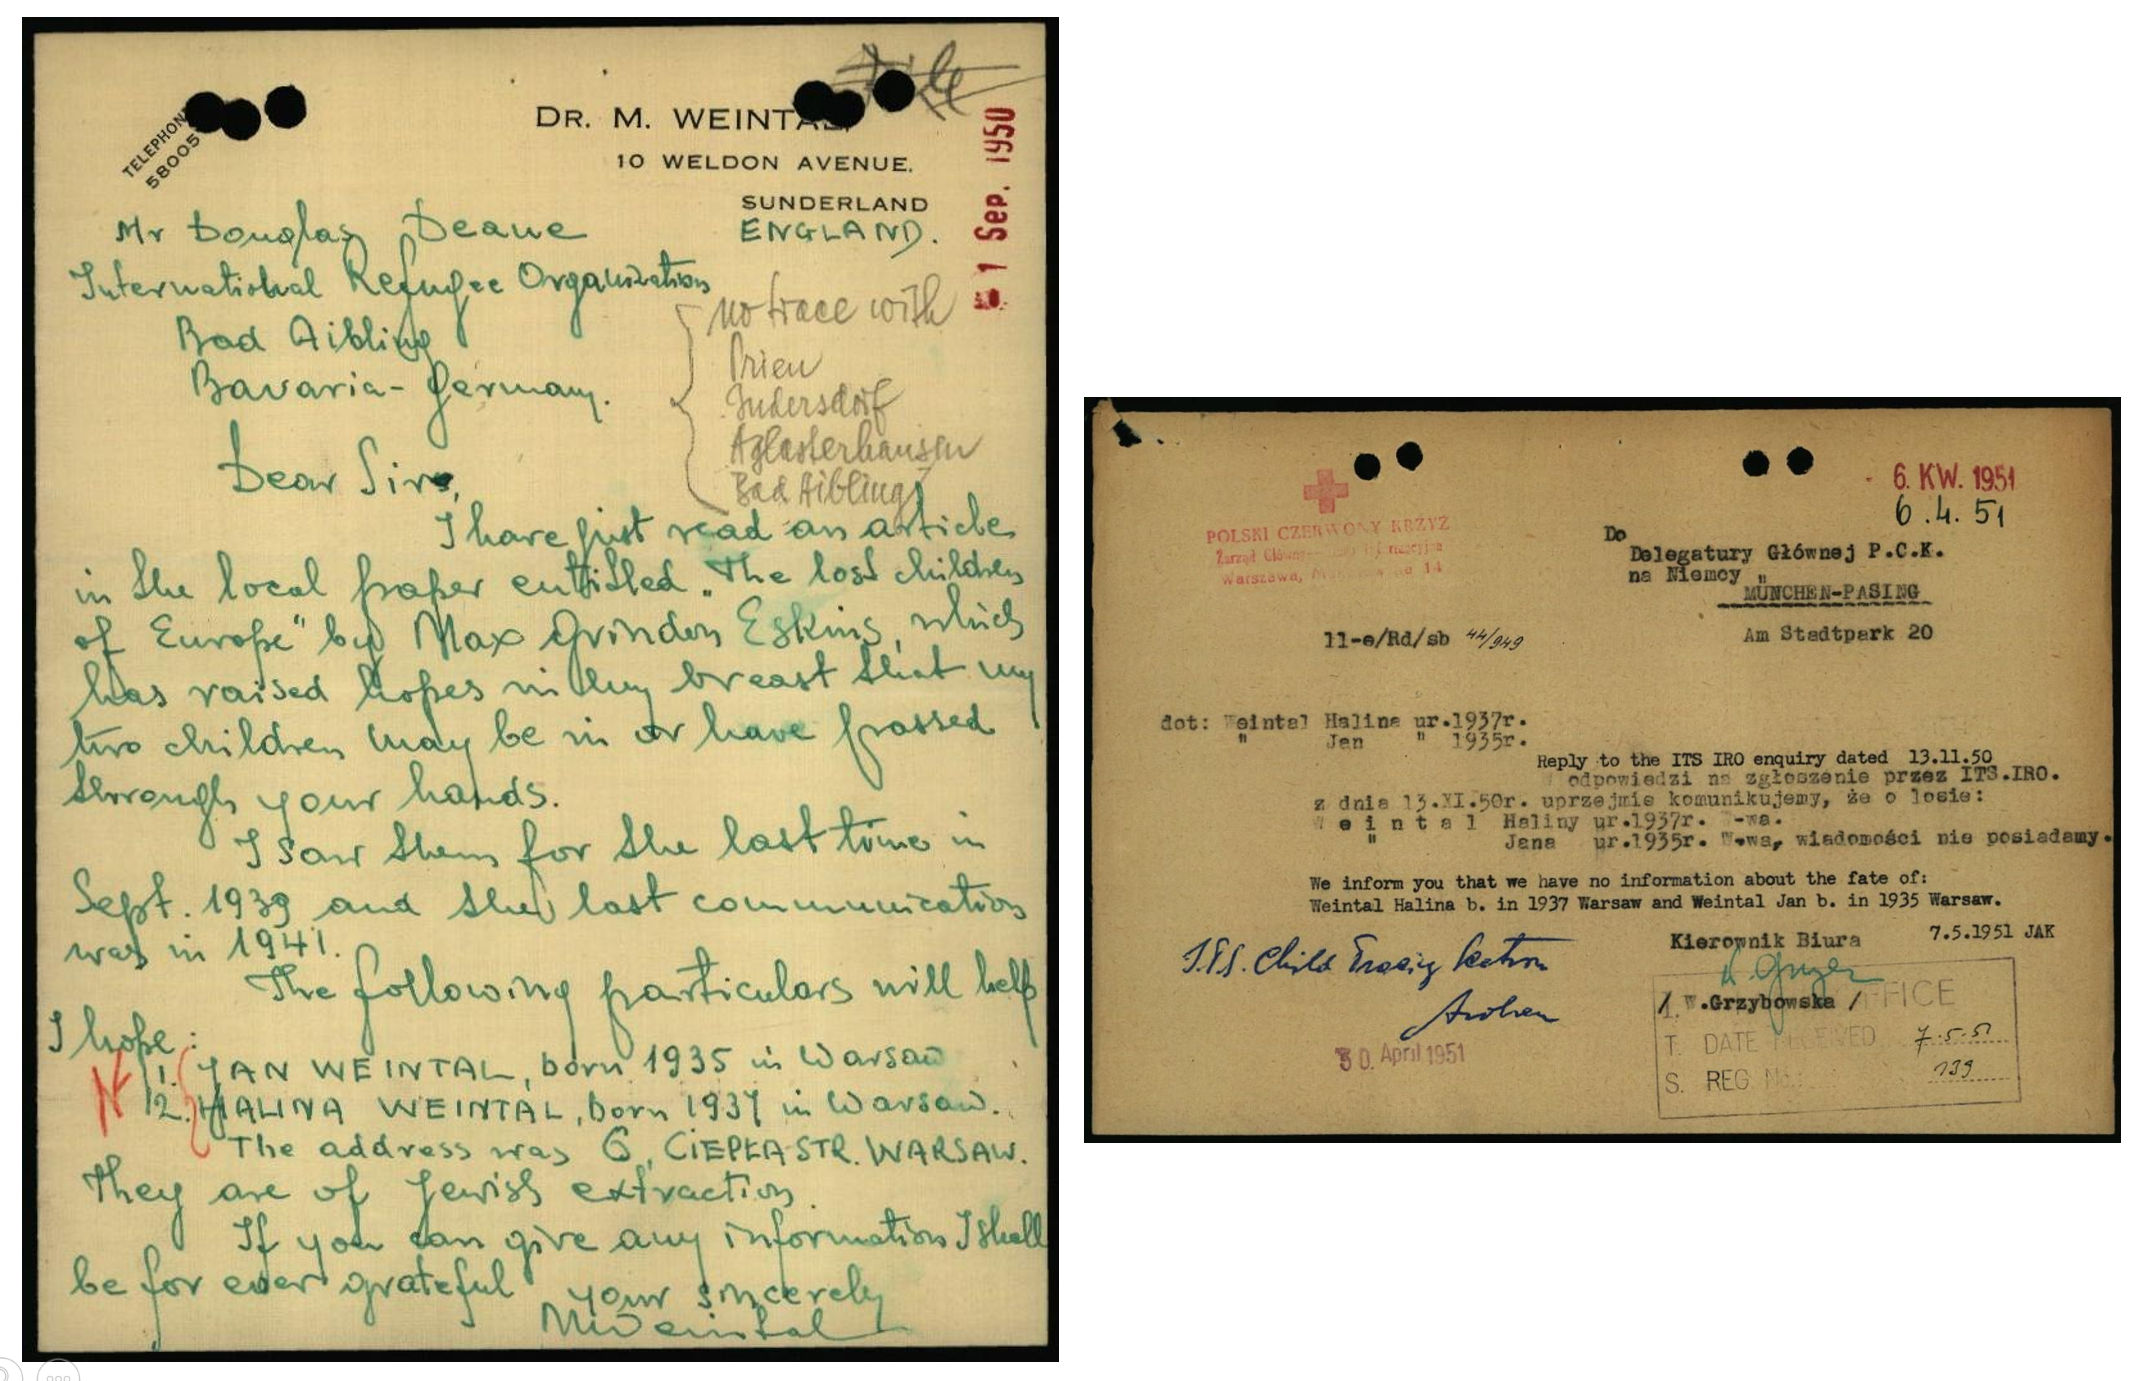 TELEPHON
58005
DR. M. WEINTAL,
10 WELDON AVENUE.
SUNDERLAND
ENGLAND.
1 Sep. 1950
Mr Douglas Deane
International Refugee Organization
Bad Aibling
Bavaria - Germany.
no trace with
Prien
Indersdorf
Aglasterhausen
Bad Aibling
Dear Sirs,
I have just read an article
in the local paper entitled „The lost children
of Europe" by Max Grindon Eskins, which
has raised hopes in my breast that my
two children may be in or have passed
through your hands.
I saw them for the last time in
Sept. 1939 and the last communication
was in 1941.
The following particulars will help
I hope:
1. JAN WEINTAL, born 1935 in Warsaw
2. HALINA WEINTAL, born 1937 in Warsaw.
The address was 6, CIEPŁA STR. WARSAW.
They are of Jewish extraction.
If you can give any information I shall
be for ever grateful
your sincerely
MWeintal
POLSKI CZERWONY KRZYŻ
Warszawa, 14
6. KW. 1951
6.4.51
Do
Delegatury Głównej P.C.K.
na Niemcy
MÜNCHEN-PASING
Am Stadtpark 20
11-e/Rd/sb 44/949
dot: Weintal Halina ur.1937r.
" Jan " 1935r.
Reply to the ITS IRO enquiry dated 13.11.50
W odpowiedzi na zgłoszenie przez ITS.IRO.
z dnia 13.XI.50r. uprzejmie komunikujemy, że o losie:
W e i n t a l Haliny ur.1937r. W-wa.
" Jana ur.1935r. W-wa, wiadomości nie posiadamy.
We inform you that we have no information about the fate of:
Weintal Halina b. in 1937 Warsaw and Weintal Jan b. in 1935 Warsaw.
Kierownik Biura
7.5.1951 JAK
I.T.S. Child Tracing Section
Arolsen
/ W.Grzybowska /
30. April 1951
I. OFFICE
T. DATE RECEIVED 7.5.51
S. REG No. 139